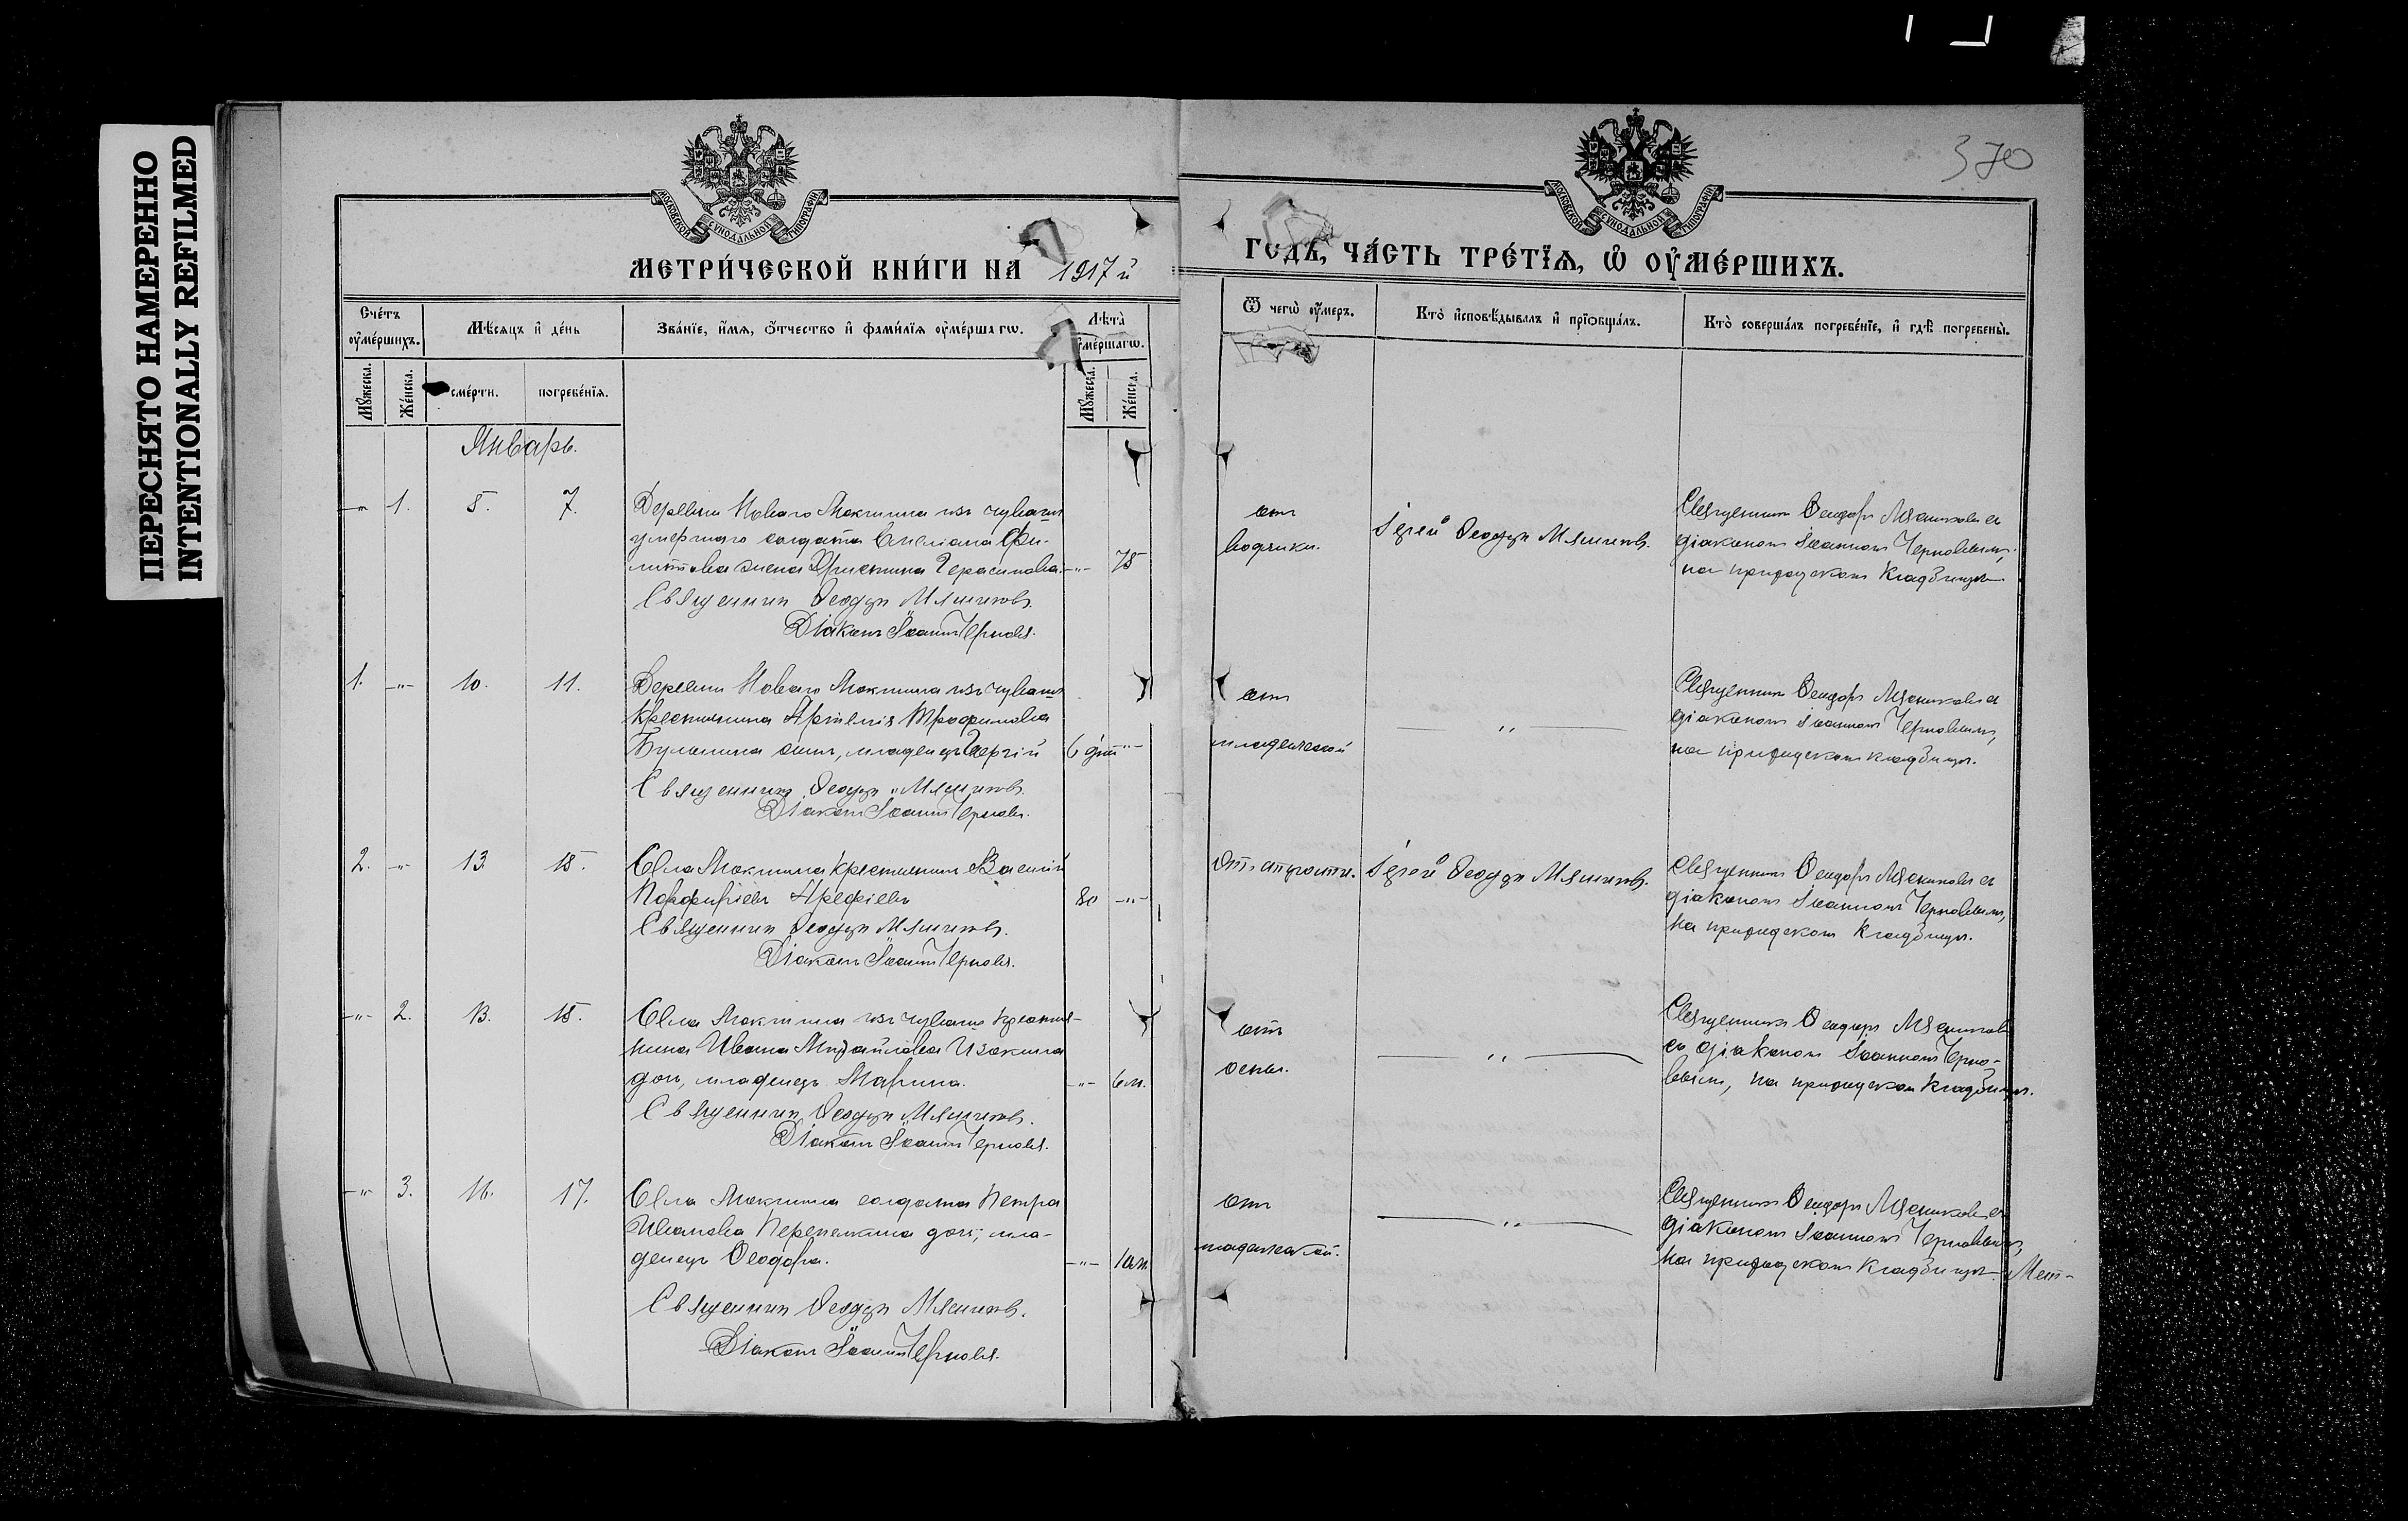 ПЕРЕСНЯТО НАМЕРЕННО
INTENTIONALLY REFILMED
370
МОСКОВСКОЙ СѴНОДАЛЬНОЙ ТИПОГРАФІИ
МОСКОВСКОЙ СѴНОДАЛЬНОЙ ТИПОГРАФІИ
МЕТРИ́ЧЕСКОЙ КНИ́ГИ НА 1917 й
ГОДЪ, ЧА́СТЬ ТРЕ́ТЇѦ, Ѡ҆ ОУ҆МЕ́РШИХЪ.
Сче́тъ оу҆ме́ршихъ.
Мꙋжеска.
Же́нска.
Мѣ́сѧцъ и҆ де́нь
сме́рти.
погребе́нїѧ.
Зва́нїе, и҆́мѧ, ѻ҆́тчество и҆ фами́лїѧ оу҆ме́ршагѡ.
Лѣ́та оу҆ме́ршагѡ.
Мꙋжеска.
Же́нска.
Ѿ чегѡ̀ оу҆́меръ.
Кто̀ и҆сповѣ́дывалъ и҆ прїѻбща́лъ.
Кто̀ соверша́лъ погребе́нїе, и҆ гдѣ̀ погребены̀.
Январь.
-"- 1. 5. 7.
Деревни Новаго Мокшина изъ чувашъ
умершаго солдата Емеліана Фи-
липпова жена Христина Герасимова. -"- 75
Священникъ Ѳеодоръ Мясниковъ.
Діаконъ Іоаннъ Черновъ.
отъ
водянки.
Іерей Ѳеодоръ Мясниковъ.
Священникъ Ѳеодоръ Мясниковъ съ
діакономъ Іоанномъ Черновымъ,
на приходскомъ кладбищѣ.
1. -"- 10. 11.
Деревни Новаго Мокшина изъ чувашъ
крестьянина Артемія Трофимова
сынъ, младенецъ Георгій 6 дней -"-
Священникъ Ѳеодоръ Мясниковъ.
Діаконъ Іоаннъ Черновъ.
отъ
младенческой
"
Священникъ Ѳеодоръ Мясниковъ съ
діакономъ Іоанномъ Черновымъ,
на приходскомъ кладбищѣ.
2. -"- 13. 15.
Села Мокшина крестьянинъ Василій
Порфиріевъ Арефіевъ 80 -"-
Священникъ Ѳеодоръ Мясниковъ.
Діаконъ Іоаннъ Черновъ.
Отъ старости.
Іерей Ѳеодоръ Мясниковъ.
Священникъ Ѳеодоръ Мясниковъ съ
діакономъ Іоанномъ Черновымъ,
на приходскомъ кладбищѣ.
-"- 2. 13. 15.
Села Мокшина изъ чувашъ крестья-
нина Ивана Михайлова Изокина
дочь, младенецъ Марина. -"- 6 м.
Священникъ Ѳеодоръ Мясниковъ.
Діаконъ Іоаннъ Черновъ.
отъ
оспы.
"
Священникъ Ѳеодоръ Мясниковъ
съ діакономъ Іоанномъ Черно-
вымъ, на приходскомъ кладбищѣ.
-"- 3. 16. 17.
Села Мокшина солдата Петра
Иванова Перепелкина дочь, мла-
денецъ Ѳеодора. -"- 10 м.
Священникъ Ѳеодоръ Мясниковъ.
Діаконъ Іоаннъ Черновъ.
отъ
младенческой.
"
Священникъ Ѳеодоръ Мясниковъ съ
діакономъ Іоанномъ Черновымъ,
на приходскомъ кладбищѣ. Мет-